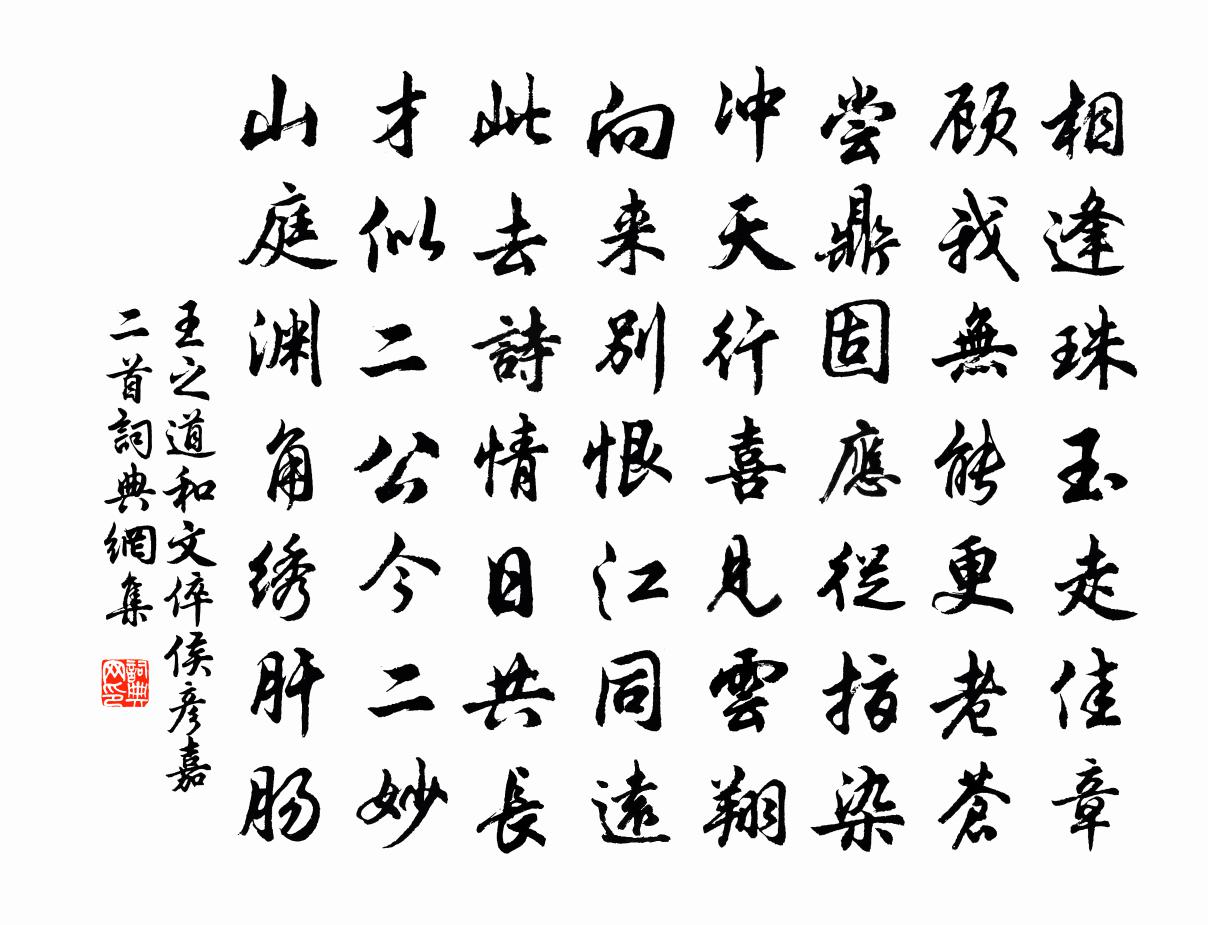 相逢珠玉走佳章
顾我無能更老蒼
尝鼎固應從指染
冲天行喜見雲翔
向来别恨江同遠
此去詩情日共長
才似二公今二妙
山庭渊角绣肝肠
王之道和文倅侯彦嘉
二首詞典網集
詞典网印